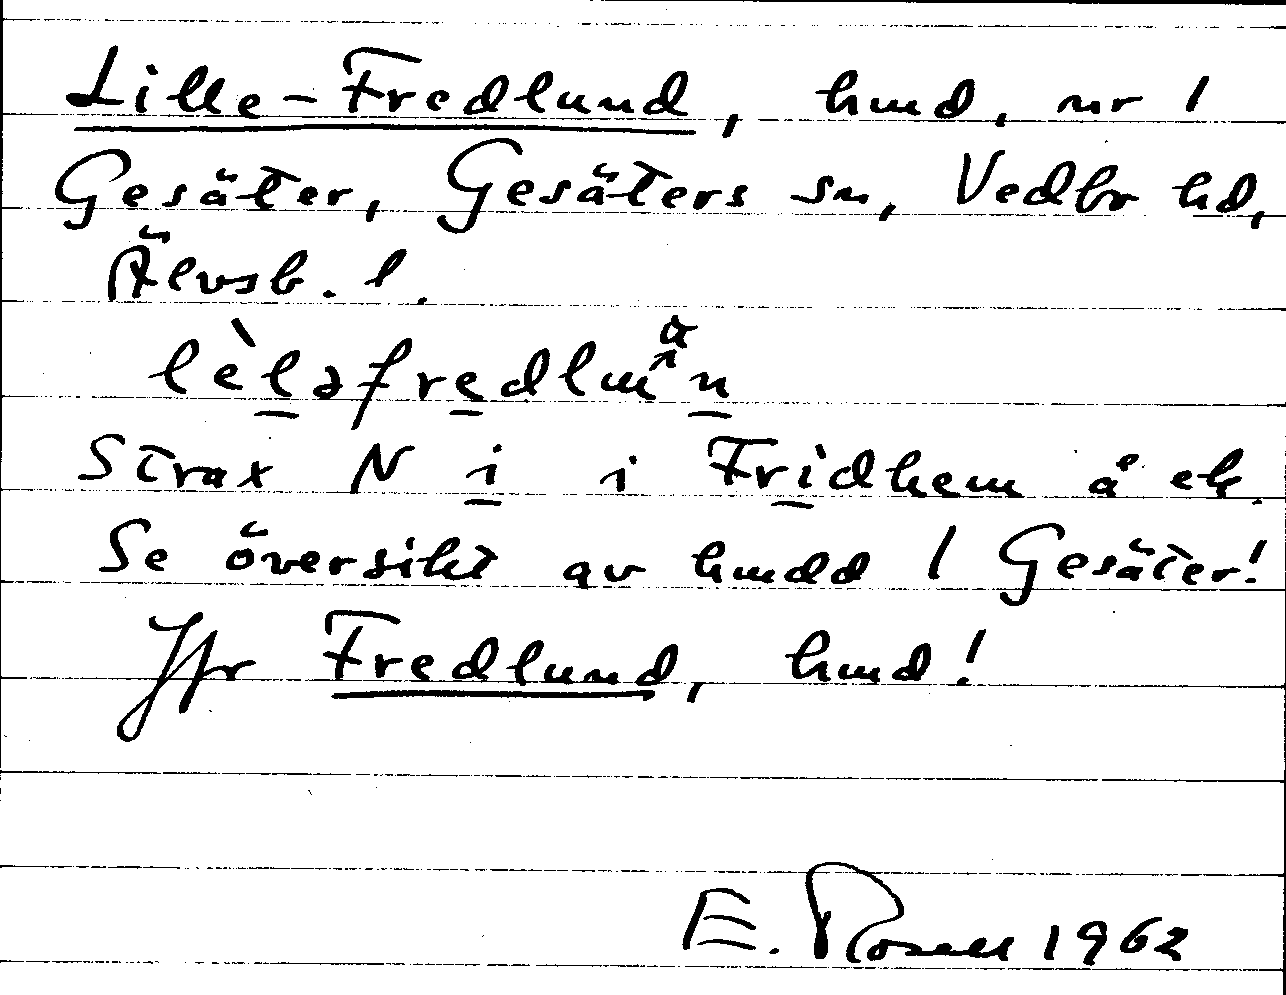 Lille-Fredlund, hmd, nr 1
Gesäter, Gesäters sn, Vedbr hd,
Älvsb. l.
lèləfredlunᵅn
Strax N i i Fridhem å ek.
Se översikt av hmdd 1 Gesäter!
Jfr Fredlund, hmd!
E. Rosell 1962